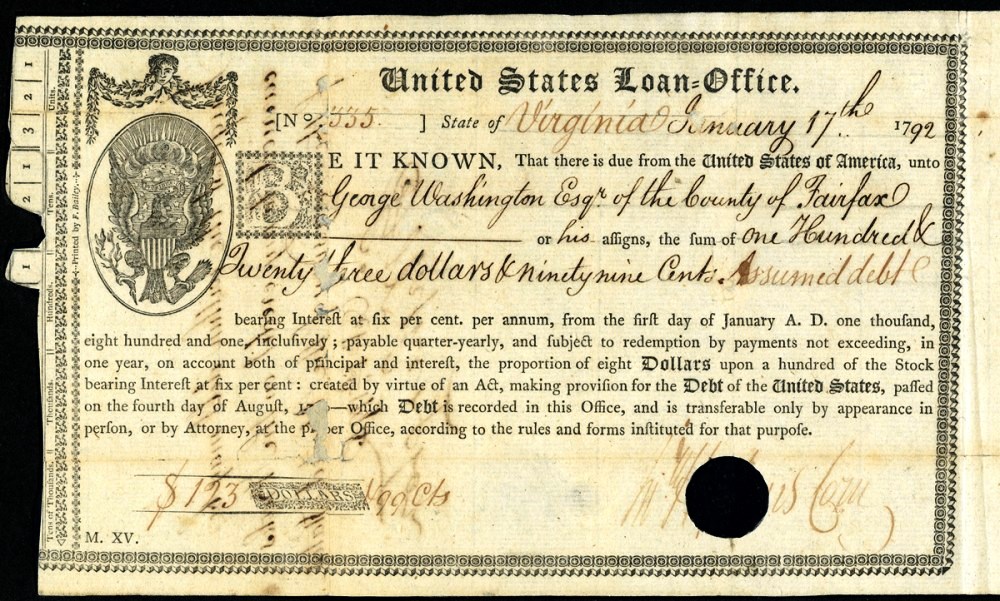 United States Loan-Office.
[No. 335. ] State of Virginia January 17th 1792
BE IT KNOWN, That there is due from the United States of America, unto
George Washington Esqr. of the County of Fairfax
or his assigns, the sum of one Hundred &
Twenty three dollars & ninety nine Cents. Assumed debt
bearing Interest at six per cent. per annum, from the first day of January A. D. one thousand,
eight hundred and one, inclusively; payable quarter-yearly, and subject to redemption by payments not exceeding, in
one year, on account both of principal and interest, the proportion of eight Dollars upon a hundred of the Stock
bearing Interest at six per cent: created by virtue of an Act, making provision for the Debt of the United States, passed
on the fourth day of August, —which Debt is recorded in this Office, and is transferable only by appearance in
person, or by Attorney, at the per Office, according to the rules and forms instituted for that purpose.
$ 123 DOLLARS 99 Cts
M. XV.
Printed by F. Bailey.
Units. 1 2 3
Tens. 1 2
Hundreds. 1
Thousands.
Tens of Thousands.